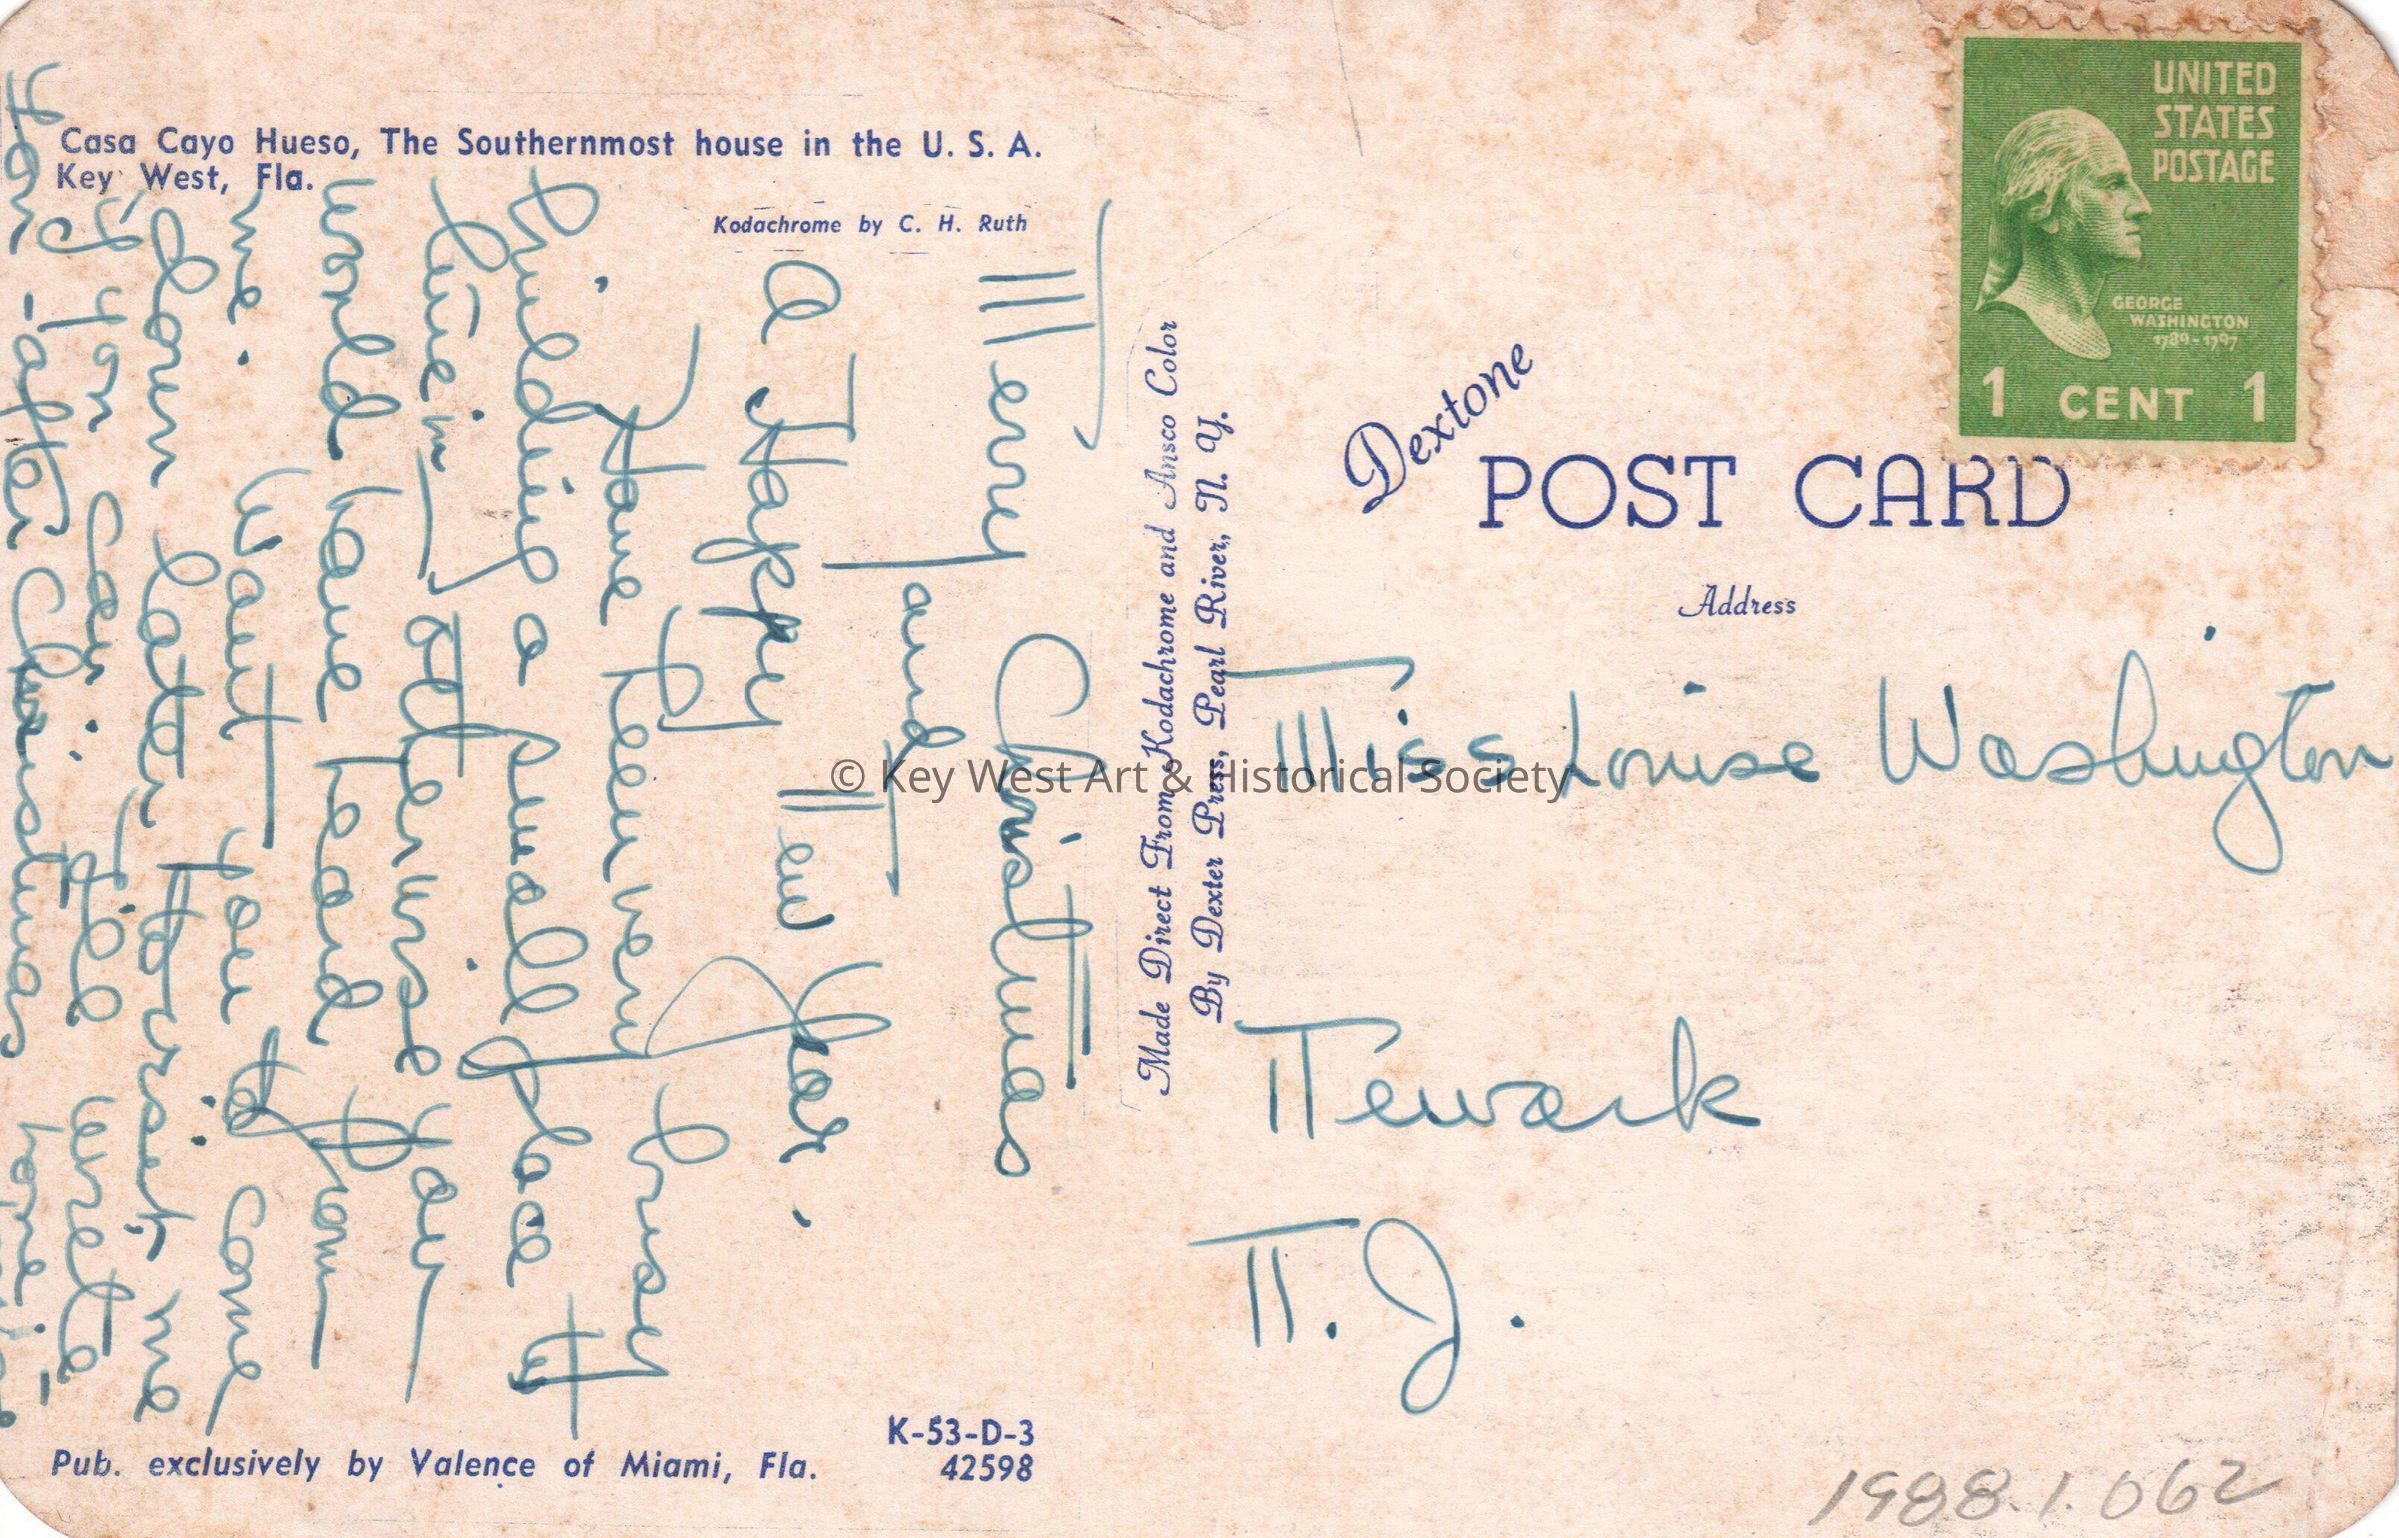 Casa Cayo Hueso, The Southernmost house in the U. S. A.
Key West, Fla.
Kodachrome by C. H. Ruth
Merry Christmas
and
A Happy New Year.
Have been very busy
building a small place to
live in, otherwise you
would have heard from
me. Want you to come
down later to visit me
if you can. Will write
-after Christmas
Pub. exclusively by Valence of Miami, Fla.
K-53-D-3
42598
Made Direct From Kodachrome and Ansco Color
By Dexter Press, Pearl River, N. Y.
Dextone
POST CARD
Address
UNITED
STATES
POSTAGE
GEORGE
WASHINGTON
1789-1797
1 CENT 1
Miss Louise Washington
Newark
N.J.
1988.1.062
© Key West Art & Historical Society